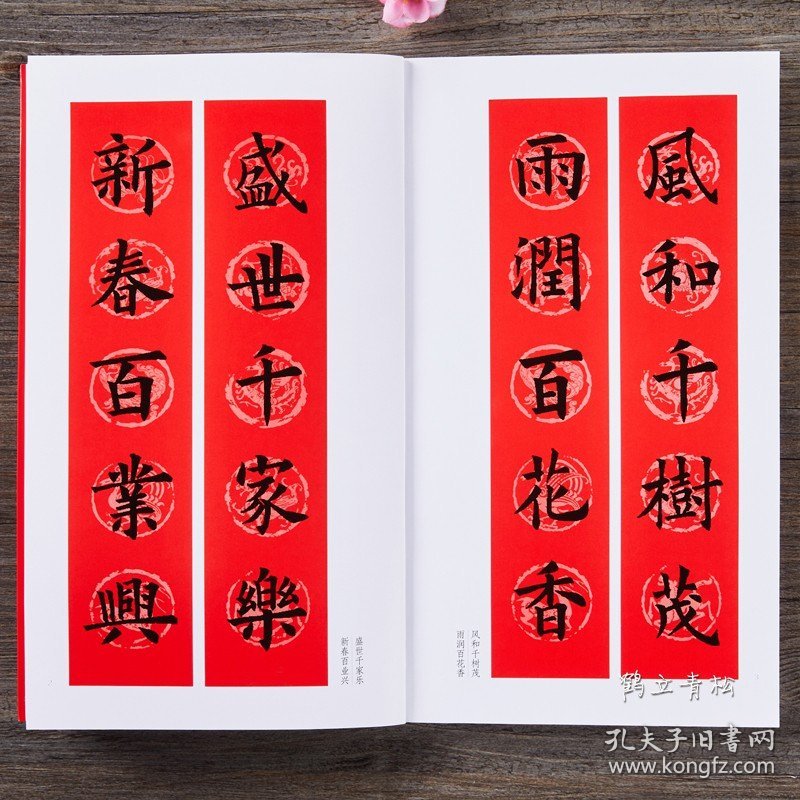 風和千樹茂
雨潤百花香
风和千树茂
雨润百花香
盛世千家樂
新春百業興
盛世千家乐
新春百业兴
鹤立青松
孔夫子旧书网
www.kongfz.com